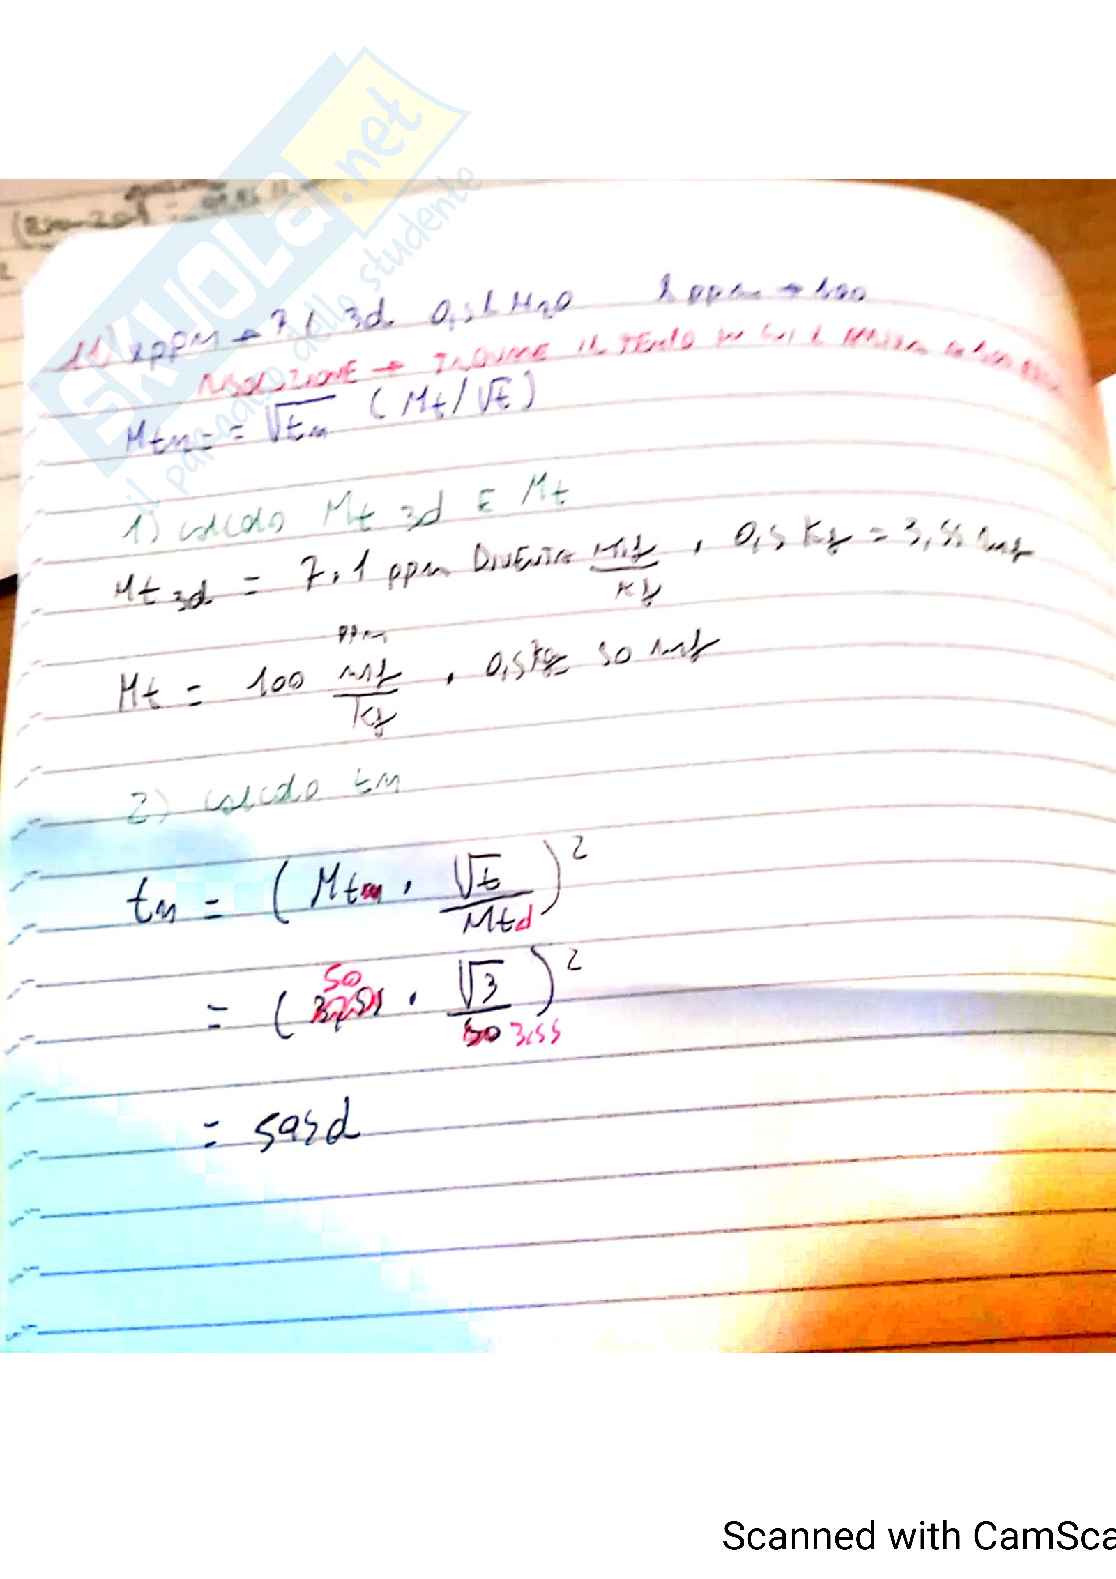 SKUOLA.net
il paradiso dello studente
11) 2 ppm → 7,1 3d 0,5 L H₂O 2 ppm → 100
RISOLUZIONE → IL TEMPO
Mtm = = √tm ( Mt/√t )
1) calcolo Mt 3d E Mt
Mt 3d = 7,1 ppm DIVENTA mg/kg · 0,5 Kg = 3,55 mg
ppm
Mt = 100 mg/kg · 0,5 kg 50 mg
2) calcolo tm
tm = ( Mtm · √t/Mtd )²
= ( 50 · √3/3,55 )²
= 595d
Scanned with CamSca